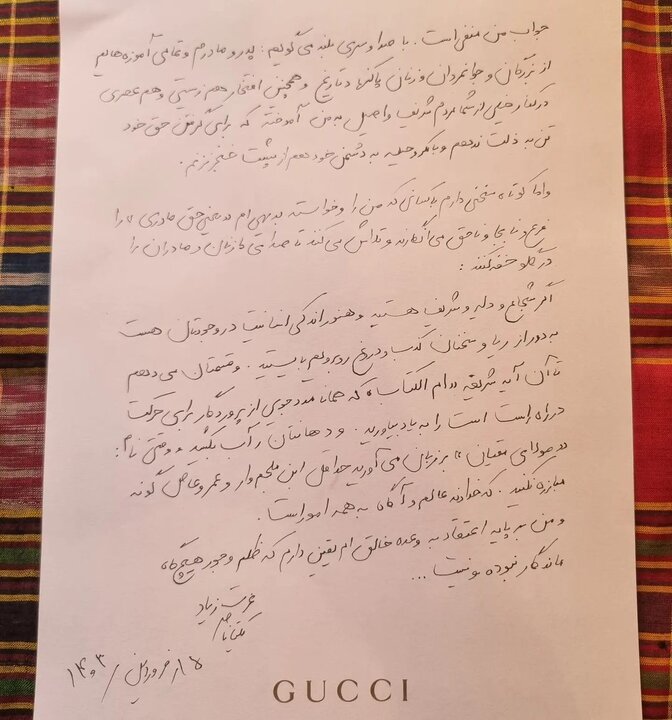 جواب من منفی است. با صدا و سری بلند می گویم: پدر و مادرم و تمامی آموزه هایم
از بزرگان و جوانمردان و زنان پاک نهاد تاریخ و همچنین افتخار هم زیستی و هم عصری
در کنار خیلی از شما مردم شریف و اصیل به من آموخته که برای گرفتن حق خود
تن به ذلت ندهم و با مکر و حیله به دشمن خود هم از پشت خنجر نزنم.
و اما کوتاه سخنی دارم با کسانی که من را و خواسته بدیهی ام "یعنی حق مادری" را
فرع و نابجا و ناحق می انگارند و تلاش می کنند تا صدای ما زنان و مادران را
در گلو خفه کنند:
اگر شجاع و دلیر و شریف هستید و هنوز اندکی انسانیت در وجودتان هست
به دور از ریا و سخنان کذب و دروغ رو برویم بایستید. و قسمتان می دهم
تا آن آیه شریفه "ام الکتاب" که همانا مددجویی از پروردگار برای حرکت
در راه راست است را به یاد بیاورید. و دهانتان را آب بکشید و وقتی نام:
"مولای متقیان" بر زبان می آورید حداقل ابن ملجم وار و عمروعاص گونه
مبارزه نکنید. که خداوند عالم و آگاه به همه امور است.
و من بر پایه اعتقاد به وعده خالق ام یقین دارم که ظلم و جور هیچگاه
ماندگار نبوده و نیست...
عزت زیاد
۱۸ از فروردین / ۱۴۰۳
GUCCI